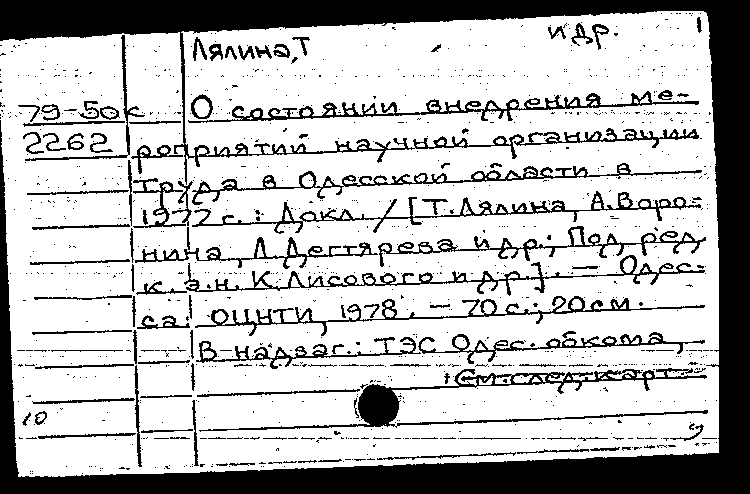 Лялина,Т и др. 1
79-50к О состоянии внедрения ме-
2262 роприятий научной организации
труда в Одесской области в
1977 г. : Докл. / [Т.Лялина, А.Воро=
нина, Л.Дегтярева и др.; Под ред.
к.э.н. К.Лисового и др.]. — Одес=
са: ОЦНТИ, 1978. — 70 с.; 20 см.
В надзаг.: ТЭС Одес. обкома,
См. след. карт.
10